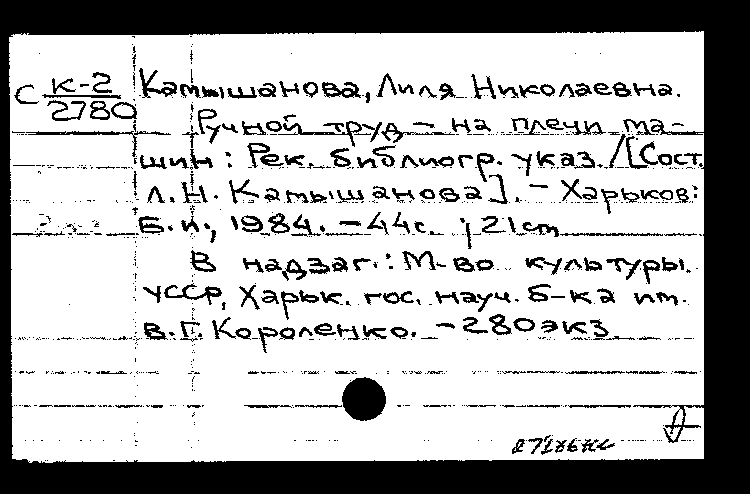 С К-2/2780 Камышанова, Лиля Николаевна.
Ручной труд – на плечи ма-
шин: Рек. библиогр. указ. /[Сост.
Л.Н. Камышанова]. – Харьков:
Б.и., 1984. – 44с. ; 21см
В надзаг.: М-во культуры
УССР, Харьк. гос. науч. б-ка им.
В.Г. Короленко. – 280экз